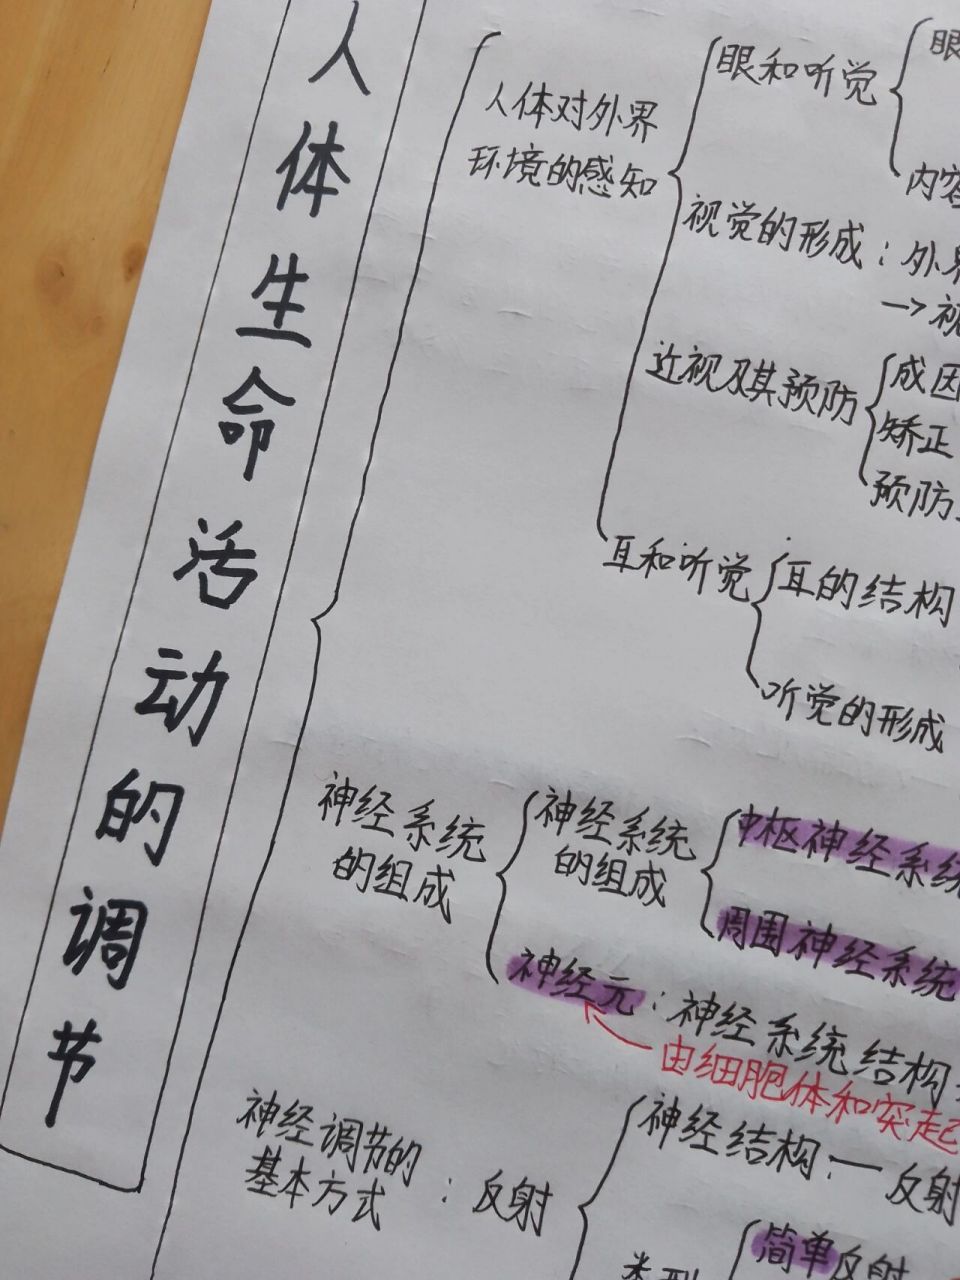 人体生命活动的调节
人体对外界
环境的感知
眼和听觉
眼
内容
视觉的形成：外界
→视
近视及其预防
成因
矫正
预防
耳和听觉
耳的结构
听觉的形成
神经系统
的组成
神经系统
的组成
中枢神经系统
周围神经系统
神经元：神经系统结构
由细胞体和突起
神经调节的
基本方式
：反射
神经结构：一反射
类型
简单反射